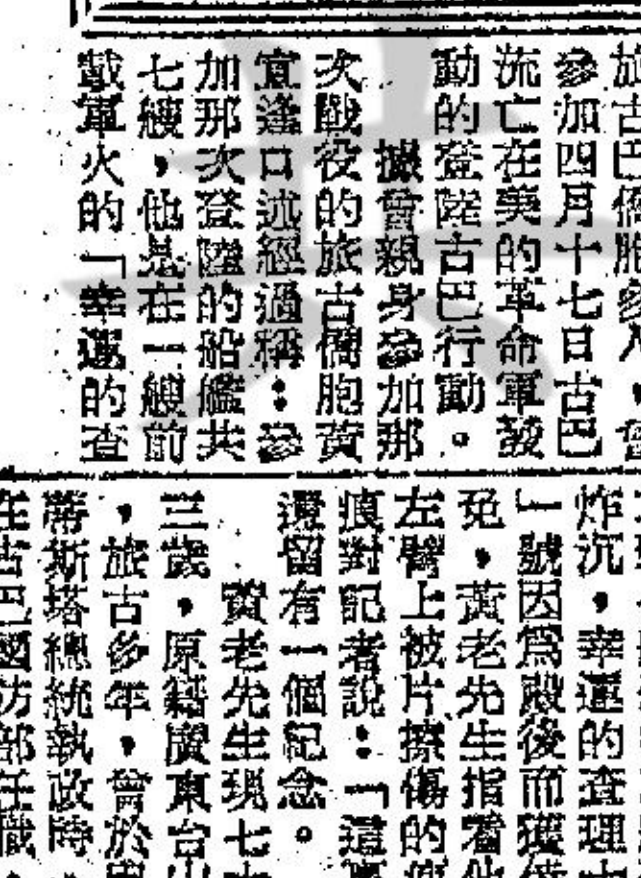 旅古巴僑胞參入，曾
參加四月十七日古巴
流亡在美的革命軍發
動的登陸古巴行動。
據曾親身參加那
次戰役的旅古僑胞黃
宜逢口述經過稱：參
加那次登陸的船艦共
七艘，他是在一艘前
載軍火的「幸運的查
炸沉，幸運的查理
一號因爲殿後而獲倖
免，黃老先生指着他
左臂上被片擦傷的
痕對記者說：「這
還留有一個紀念。
黃老先生現七十
三歲，原籍廣東台山
，旅古多年，曾於
蒂斯塔總統執政時
在古巴國防部任職